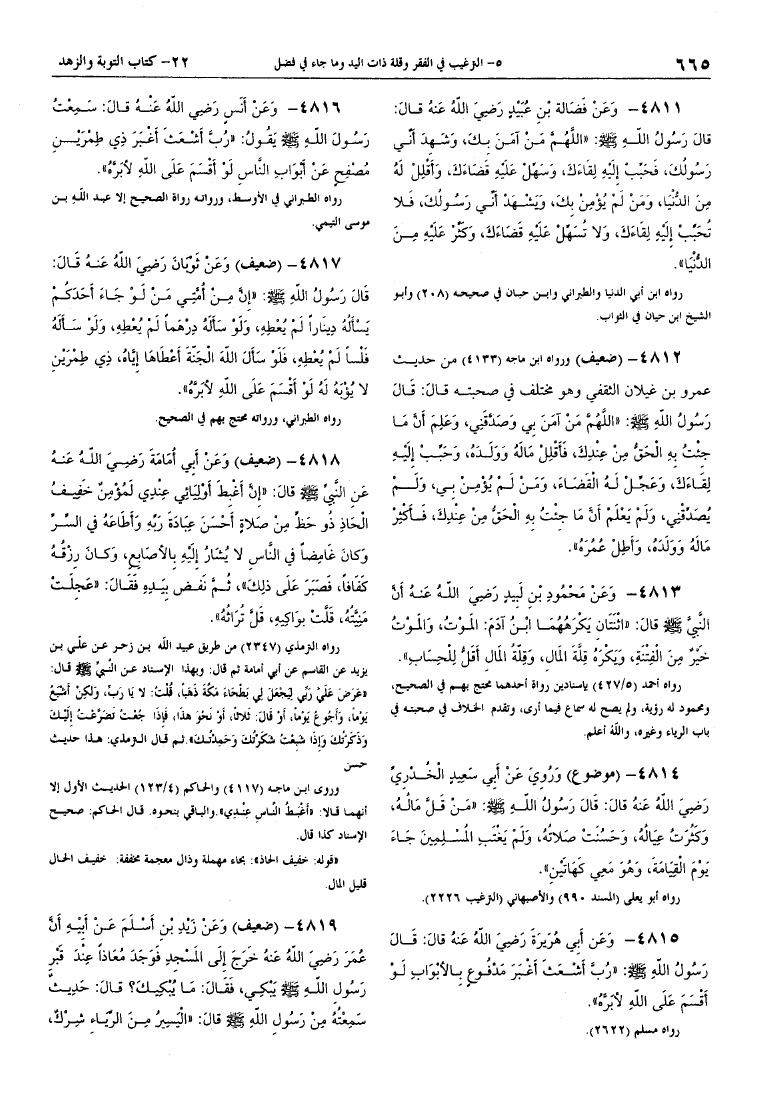 ٦٦٥
٥- الترغيب في الفقر وقلة ذات اليد وما جاء في فضل
٢٢- كتاب التوبة والزهد
٤٨١١- وَعَنْ فَضَالة بْنِ عُبَيْدٍ رَضِيَ اللَّهُ عَنهُ قَالَ:
قالَ رَسُولُ اللَّهِ ﷺ: «اللَّهُمَّ مَنْ آمَنَ بِكَ، وَشَهِدَ أَنِّي
رَسُولُكَ، فَحَبِّبْ إِلَيْهِ لِقَاءَكَ، وَسَهِّلْ عَلَيْهِ قَضَاءَكَ، وَأَقْلِلْ لَهُ
مِنَ الدُّنْيَا، وَمَنْ لَمْ يُؤْمِنْ بِكَ، وَيَشْهَدْ أَنِّي رَسُولُكَ، فَلا
تُحَبِّبْ إِلَيْهِ لِقَاءَكَ، وَلا تُسَهِّلْ عَلَيْهِ قَضَاءَكَ، وَكَثِّرْ عَلَيْهِ مِنَ
الدُّنْيَا».
رواه ابن أبي الدنيا والطبراني وابن حبان في صحيحه (٢٠٨) وأبو
الشيخ ابن حيان في الثواب.
٤٨١٢- (ضعيف) ورواه ابن ماجه (٤١٣٣) من حديث
عمرو بن غيلان الثقفي وهو مختلف في صحبته قالَ: قَالَ
رَسُولُ اللَّهِ ﷺ: «اللَّهُمَّ مَنْ آمَنَ بِي وَصَدَّقَنِي، وَعَلِمَ أَنَّ مَا
جِئْتُ بِهِ الْحَقُّ مِنْ عِنْدِكَ، فَأَقْلِلْ مَالَهُ وَوَلَدَهُ، وَحَبِّبْ إِلَيْهِ
لِقَاءَكَ، وَعَجِّلْ لَهُ الْقَضَاءَ، وَمَنْ لَمْ يُؤْمِنْ بِي، وَلَمْ
يُصَدِّقْنِي، وَلَمْ يَعْلَمْ أَنَّ مَا جِئْتُ بِهِ الْحَقُّ مِنْ عِنْدِكَ، فَأَكْثِرْ
مَالَهُ وَوَلَدَهُ، وَأَطِلْ عُمُرَهُ».
٤٨١٣- وَعَنْ مَحْمُودِ بْنِ لَبِيدٍ رَضِيَ اللَّهُ عَنهُ أَنَّ
النَّبِيَّ ﷺ قالَ: «اثْنَتَانِ يَكْرَهُهُمَا ابْنُ آدَمَ: الْمَوْتُ، وَالْمَوْتُ
خَيْرٌ مِنَ الْفِتْنَةِ، وَيَكْرَهُ قِلَّةَ الْمَالِ، وَقِلَّةُ الْمَالِ أَقَلُّ لِلْحِسَابِ».
رواه أحمد (٤٢٧/٥) بإسنادين رواة أحدهما محتج بهم في الصحيح،
ومحمود له رؤية، ولم يصح له سماع فيما أرى، وتقدم الخلاف في صحبته في
باب الرياء وغيره، واللَّهُ أعلم.
٤٨١٤- (موضوع) وَرُوِيَ عَنْ أَبِي سَعِيدٍ الْخُدْرِيِّ
رَضِيَ اللَّهُ عَنهُ قالَ: قَالَ رَسُولُ اللَّهِ ﷺ: «مَنْ قَلَّ مَالُهُ،
وَكَثُرَتْ عِيَالُهُ، وَحَسُنَتْ صَلاتُهُ، وَلَمْ يَغْتَبِ الْمُسْلِمِينَ جَاءَ
يَوْمَ الْقِيَامَةِ، وَهُوَ مَعِي كَهَاتَيْنِ».
رواه أبو يعلى (المسند ٩٩٠) والأصبهاني (الترغيب ٢٢٢٦).
٤٨١٥- وَعَن أَبِي هُرَيْرَةَ رَضِيَ اللَّهُ عَنهُ قَالَ: قَالَ
رَسُولُ اللَّهِ ﷺ: «رُبَّ أَشْعَثَ أَغْبَرَ مَدْفُوعٍ بِالأَبْوَابِ لَوْ
أَقْسَمَ عَلَى اللَّهِ لأَبَرَّهُ».
رواه مسلم (٢٦٢٢).
٤٨١٦- وَعَنْ أَنَسٍ رَضِيَ اللَّهُ عَنْهُ قَالَ: سَمِعْتُ
رَسُولَ اللَّهِ ﷺ يَقُولُ: «رُبَّ أَشْعَثَ أَغْبَرَ ذِي طِمْرَيْنِ
مُصْفِحٍ عَنْ أَبْوَابِ النَّاسِ لَوْ أَقْسَمَ عَلَى اللَّهِ لأَبَرَّهُ».
رواه الطبراني في الأوسط، ورواته رواة الصحيح إلا عبد اللَّهِ بن
موسى التيمي.
٤٨١٧- (ضعيف) وَعَنْ ثَوْبَانَ رَضِيَ اللَّهُ عَنهُ قَالَ:
قَالَ رَسُولُ اللَّهِ ﷺ: «إِنَّ مِنْ أُمَّتِي مَنْ لَوْ جَاءَ أَحَدَكُمْ
يَسْأَلُهُ دِينَاراً لَمْ يُعْطِهِ، وَلَوْ سَأَلَهُ دِرْهَماً لَمْ يُعْطِهِ، وَلَوْ سَأَلَهُ
فَلْساً لَمْ يُعْطِهِ، فَلَوْ سَأَلَ اللَّهَ الْجَنَّةَ أَعْطَاهَا إِيَّاهُ، ذِي طِمْرَيْنِ
لا يُؤْبَهُ لَهُ لَوْ أَقْسَمَ عَلَى اللَّهِ لأَبَرَّهُ».
رواه الطبراني، ورواته محتج بهم في الصحيح.
٤٨١٨- (ضعيف) وَعَنْ أَبِي أُمَامَةَ رَضِيَ اللَّهُ عَنهُ
عَنِ النَّبِيِّ ﷺ قَالَ: «إِنَّ أَغْبَطَ أَوْلِيَائِي عِنْدِي لَمُؤْمِنٌ خَفِيفُ
الْحَاذِ ذُو حَظٍّ مِنْ صَلاةٍ أَحْسَنَ عِبَادَةَ رَبِّهِ وَأَطَاعَهُ فِي السِّرِّ
وَكَانَ غَامِضاً فِي النَّاسِ لا يُشَارُ إِلَيْهِ بِالأَصَابِعِ، وَكَانَ رِزْقُهُ
كَفَافاً، فَصَبَرَ عَلَى ذلِكَ»، ثُمَّ نَفَضَ بِيَدِهِ فَقَالَ: «عَجِلَتْ
مَنِيَّتُهُ، قَلَّتْ بَوَاكِيهِ، قَلَّ تُرَاثُهُ».
رواه الترمذي (٢٣٤٧) من طريق عبيد اللَّه بن زحر عن علي بن
يزيد عن القاسم عن أبي أمامة ثم قال: وبهذا الإسناد عن النبيِّ ﷺ قال:
«عَرَضَ عَلَيَّ رَبِّي لِيَجْعَلَ لِي بَطْحَاءَ مَكَّةَ ذَهَباً، قُلْتُ: لا يَا رَبِّ، وَلكِنْ أَشْبَعُ
يَوْماً، وَأَجُوعُ يَوْماً، أَوْ قَالَ: ثَلاثاً، أَوْ نَحْوَ هذَا، فَإِذَا جُعْتُ تَضَرَّعْتُ إِلَيْكَ
وَذَكَرْتُكَ وَإِذَا شَبِعْتُ شَكَرْتُكَ وَحَمِدْتُكَ». ثم قال الترمذي: هذا حديث
حسن
وروى ابن ماجه (٤١١٧) والحاكم (١٢٣/٤) الحديث الأول إلا
أنهما قالا: «أَغْبَطُ النَّاسِ عِنْدِي». والباقي بنحوه. قال الحاكم: صحيح
الإسناد كذا قال.
«قوله: خفيف الحاذ»: بحاء مهملة وذال معجمة مخففة: خفيف الحال
قليل المال.
٤٨١٩- (ضعيف) وَعَنْ زَيْدِ بْنِ أَسْلَمَ عَنْ أَبِيهِ أَنَّ
عُمَرَ رَضِيَ اللَّهُ عَنهُ خَرَجَ إِلَى الْمَسْجِدِ فَوَجَدَ مُعَاذاً عِنْدَ قَبْرِ
رَسُولِ اللَّهِ ﷺ يَبْكِي، فَقَالَ: مَا يُبْكِيكَ؟ قالَ: حَدِيثٌ
سَمِعْتُهُ مِنْ رَسُولِ اللَّهِ ﷺ قَالَ: «الْيَسِيرُ مِنَ الرِّيَاءِ شِرْكٌ،